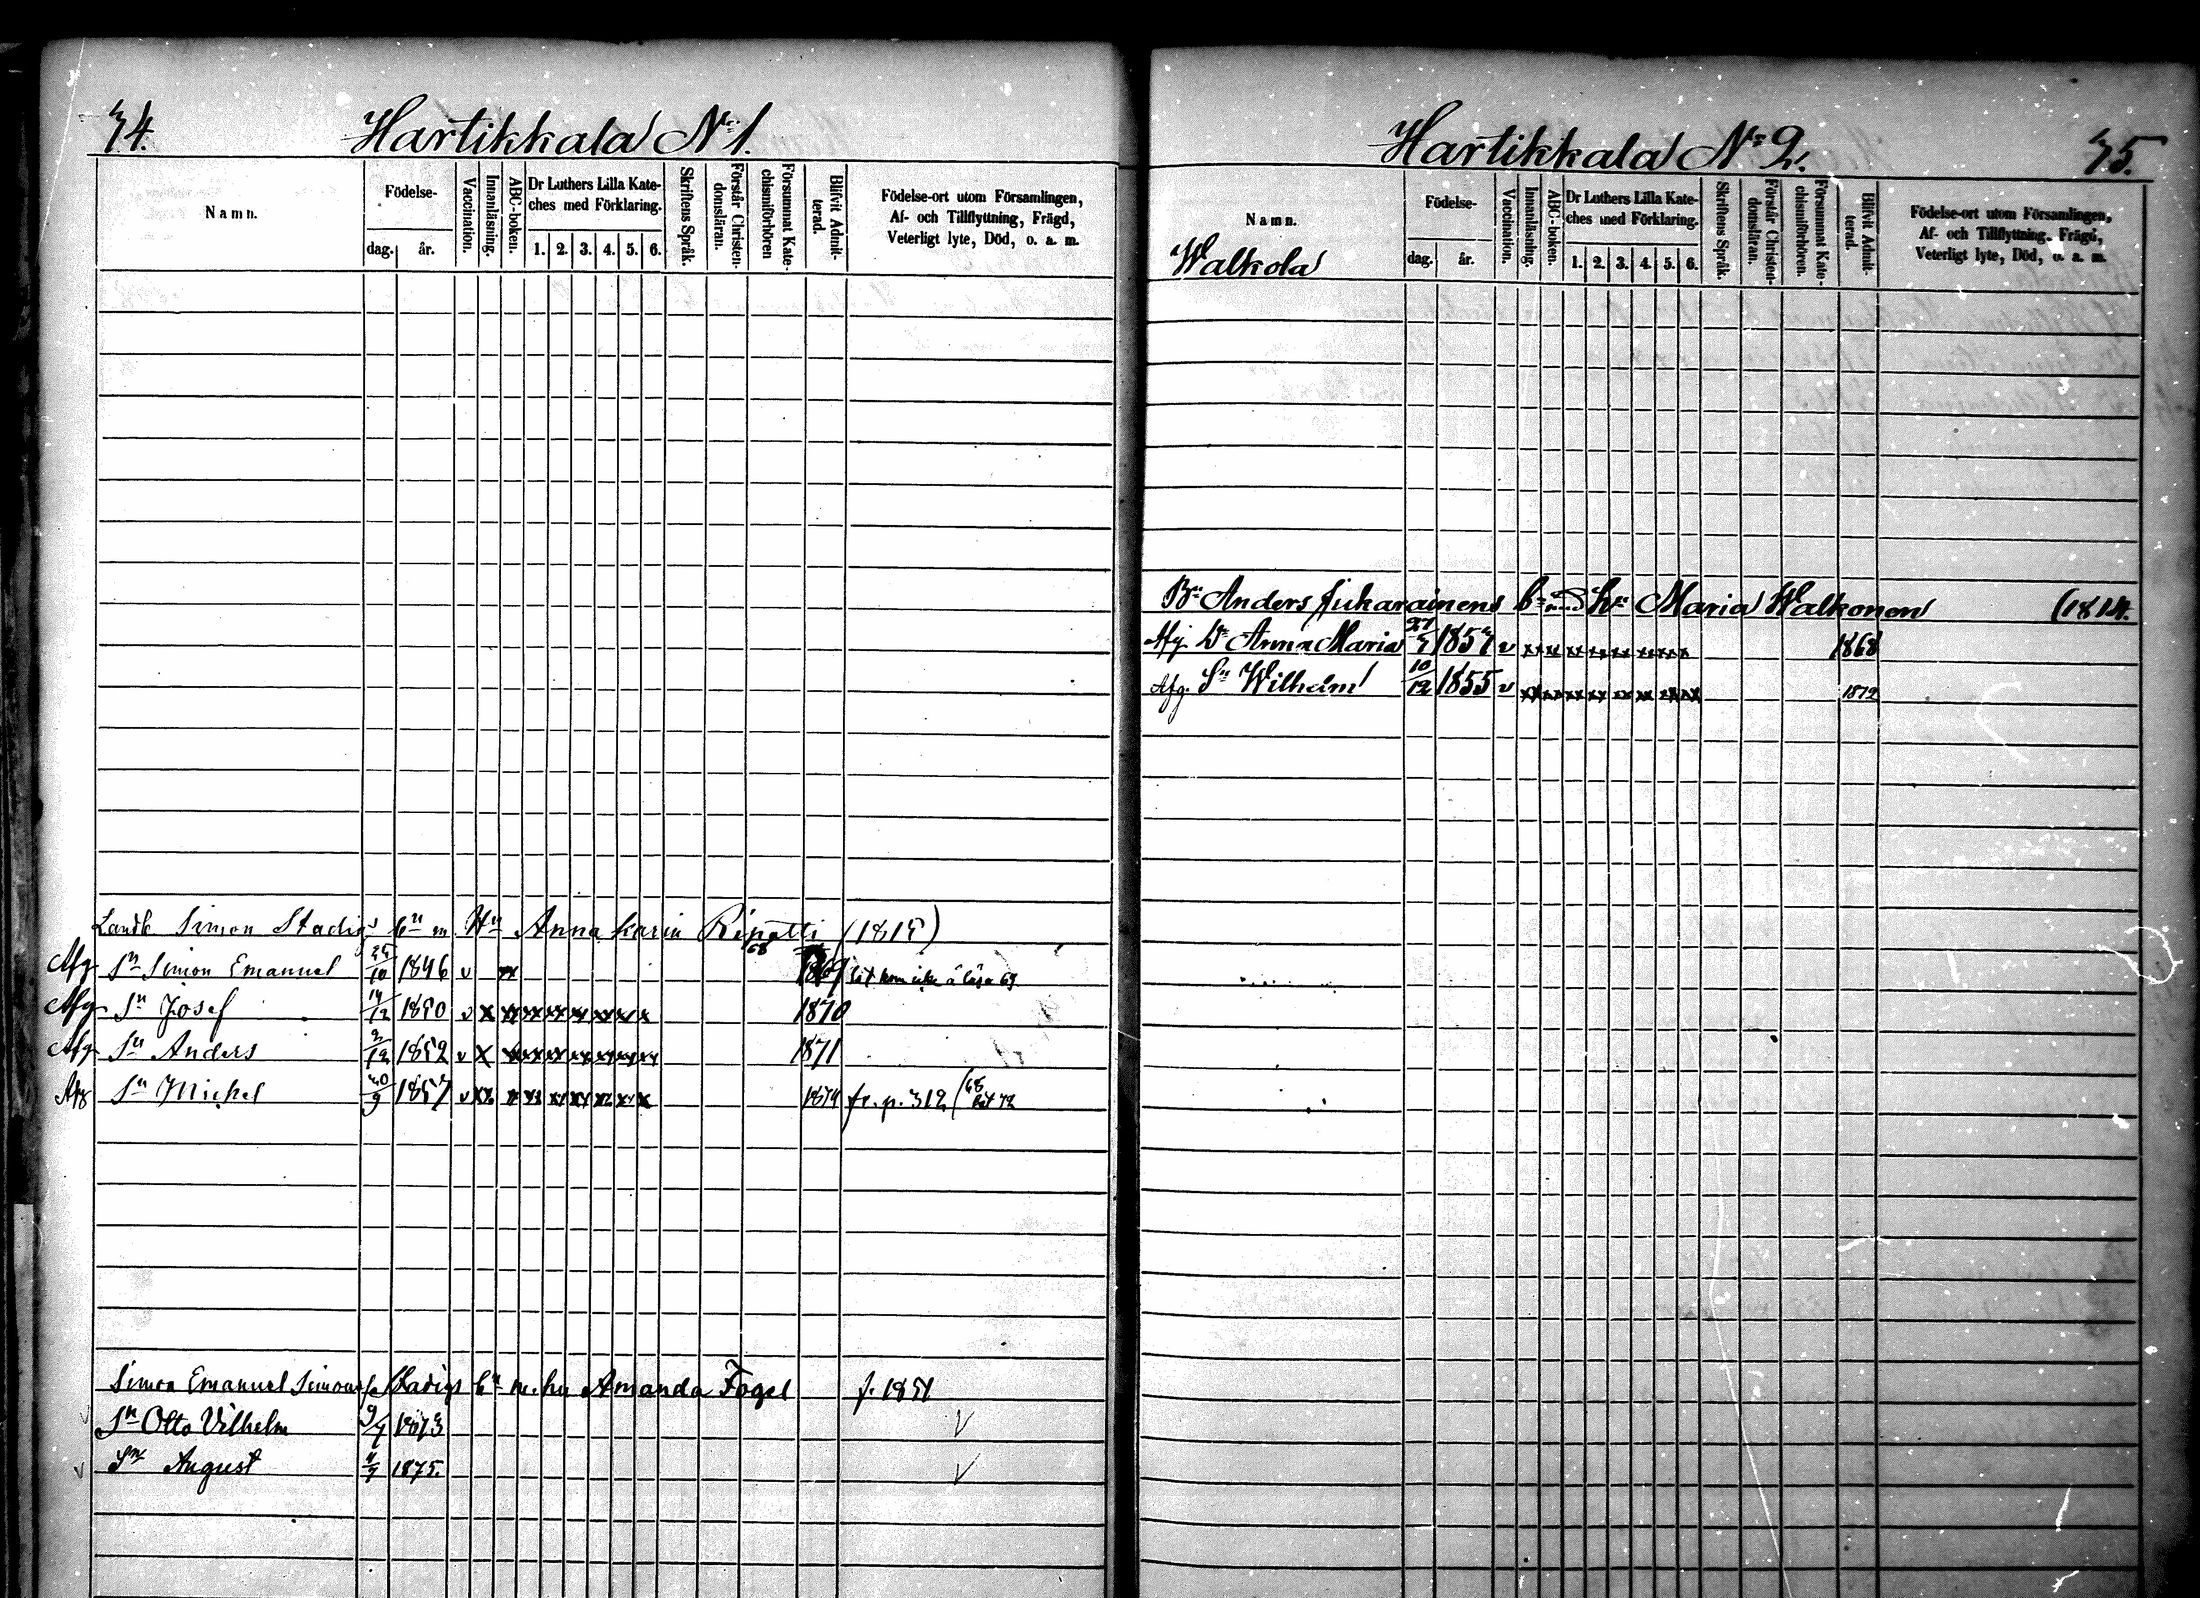 74.
Hartikkala No 1.
Namn.
Födelse-
dag.
år.
Vaccination.
Innanläsning.
ABC-boken.
Dr Luthers Lilla Kate-
ches med Förklaring.
1. 2. 3. 4. 5. 6.
Skriftens Språk.
Förstår Christen-
domsläran.
Försummat Kate-
chismiförhören
Blifvit Admit-
terad.
Födelse-ort utom Församlingen,
Af- och Tillflyttning, Frägd,
Veterligt lyte, Död, o. a. m.
Landb Simon Stadigs bn m Hu Anna Karin Ripatti (1815)
68
Afg Sn Simon Emanuel 10 1846 v xx 1869
Afg Sn Josef 14/12 1850 v x xx xx xx xx xx xx x 1870
Afg Sn Anders 2/12 1852 v x xx xx xx xx xx xx 1871
Afg Sn Michel 20/9 1857 v xx x xx xx xx xx xx x 1874 fr. p. 312
Simon Emanuel Simons Stadigs bn m. hu Amanda Fogel f. 1851
v Sn Otto Vilhelm 9/7 1873 v
v Sn August 1875. v
Hartikkala No 2.
75.
Namn.
Walkola
Födelse-
dag.
år.
Vaccination.
Innanläsning.
ABC-boken.
Dr Luthers Lilla Kate-
ches med Förklaring.
1. 2. 3. 4. 5. 6.
Skriftens Språk.
Förstår Christen-
domsläran.
Försummat Kate-
chismiförhören.
Blifvit Admit-
terad.
Födelse-ort utom Församlingen,
Af- och Tillflyttning, Frägd,
Veterligt lyte, Död, o. a. m.
Bn Anders Jukarainens bn med hu Maria Walkonen (1814.
Afg Dr Anna Maria 27 1857 v xx xx xx xx xx xx xx x 1868
Afg. Sn Wilhelm 10/12 1855 v xx xx xx xx xx xx xx xx 1872